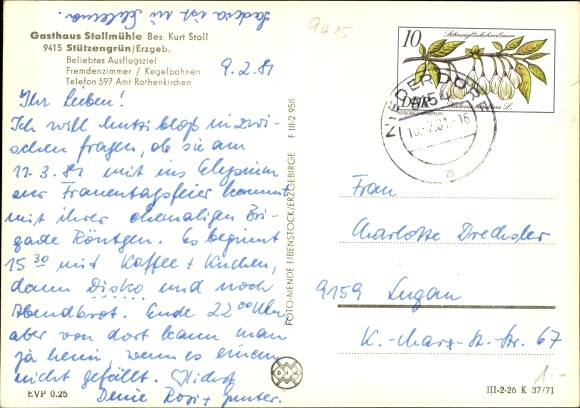 Gasthaus Stollmühle Bes. Kurt Stoll
9415 Stützengrün/Erzgeb.
Beliebtes Ausflugsziel
Fremdenzimmer / Kegelbahnen
Telefon 597 Amt Rothenkirchen
9.2.81
Ihr Lieben!
Ich will Mutzi bloß inzwi-
schen fragen, ob sie am
11.3.81 mit ins Elysium
zur Frauentagsfeier kommt
mit ihrer ehemaligen Bri-
gade Röntgen. Es beginnt
15 30 mit Kaffee + Kuchen,
dann Disko und noch
Abendbrot. Ende 22 00 Uhr,
aber von dort kann man
ja heim, wenn es einem
nicht gefällt.
Deine Rosi + Gunter.
EVP 0.25
FOTO-MENDE EIBENSTOCK/ERZGEBIRGE F III-2 958
9415
10
Schneeglöckchenbaum
DDR
Frau
Charlotte Drechsler
9159 Lugau
K.-Marx-Str. 67
1.-
III-2-26 K 37/71